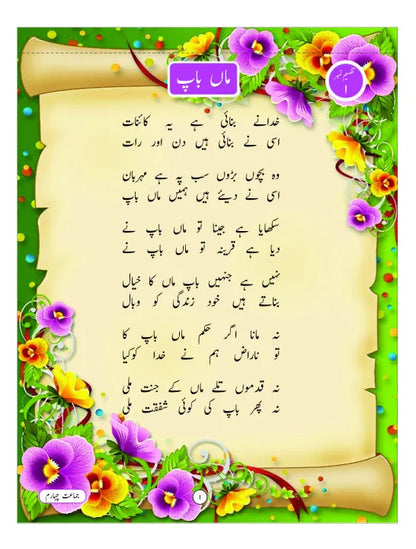 ماں باپ
نظم نمبر
۱
خدانے بنائی ہے یہ کائنات
اسی نے بنائی ہیں دن اور رات
وہ بچوں بڑوں سب پہ ہے مہربان
اسی نے دیئے ہیں ہمیں ماں باپ
سکھایا ہے جینا تو ماں باپ نے
دیا ہے قرینہ تو ماں باپ نے
نہیں ہے جنہیں باپ ماں کا خیال
بناتے ہیں خود زندگی کو وبال
نہ مانا اگر حکم ماں باپ کا
تو ناراض ہم نے خدا کوکیا
نہ قدموں تلے ماں کے جنت ملی
نہ پھر باپ کی کوئی شفقت ملی
۱
جماعت چہارم